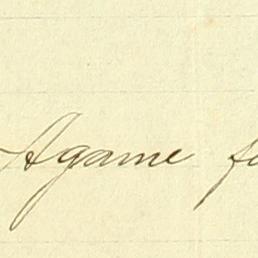 Agame fo